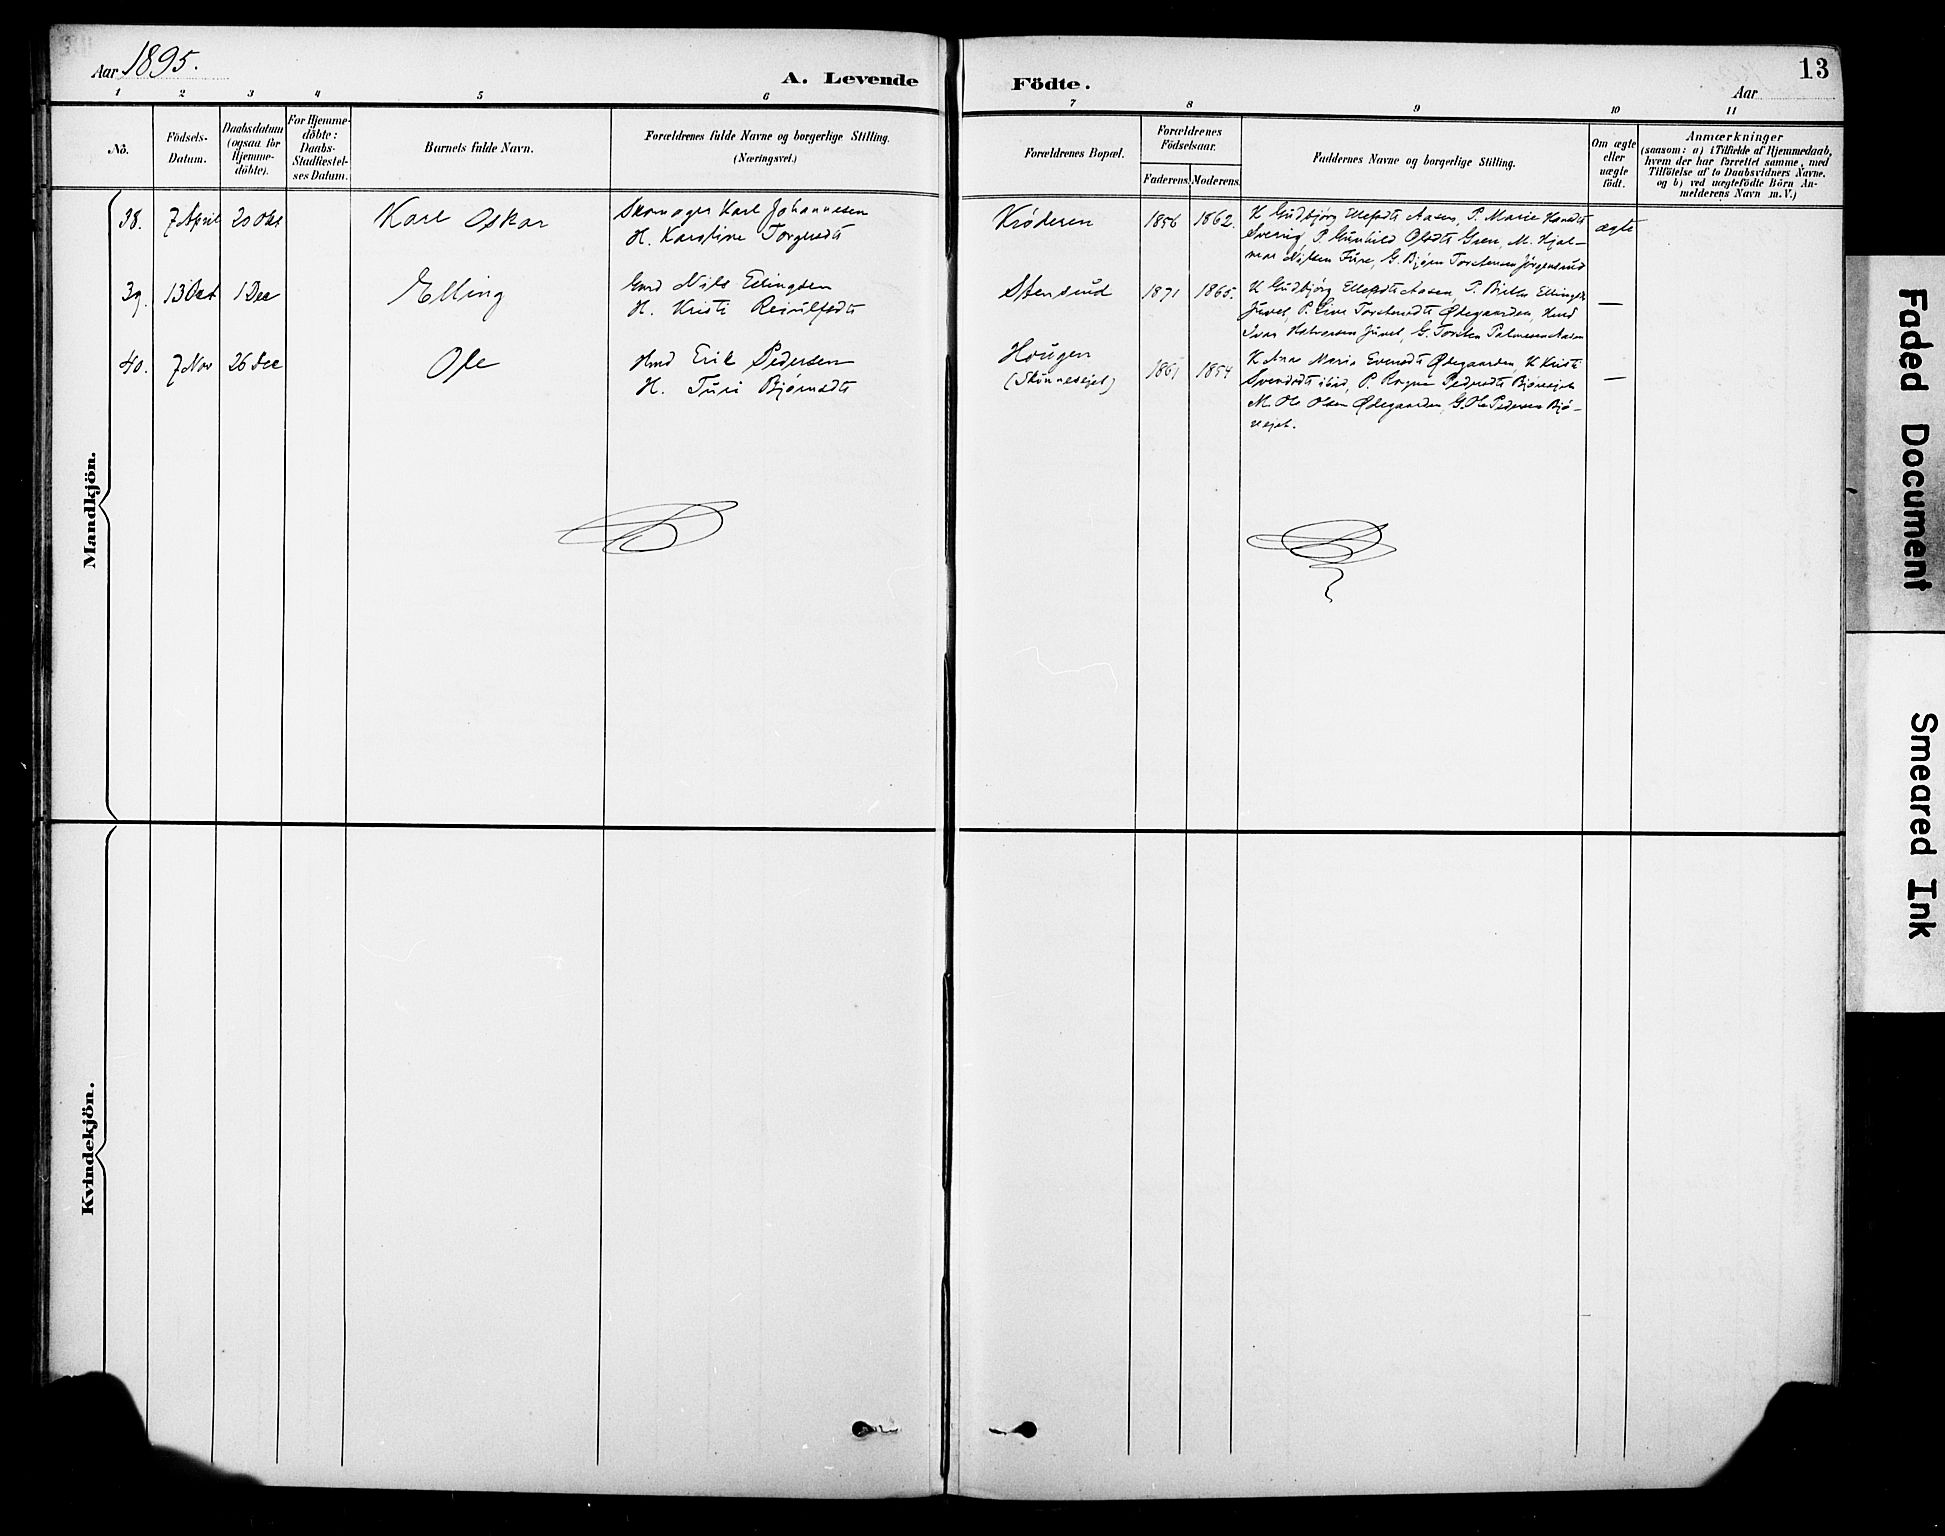 Aar 1895.
A. Levende Födte.
13
Aar
1 2 3 4 5 6 7 8 9 10 11
No.
Födsels-Datum.
Daabsdatum (ogsaa for Hjemme-döbte).
For Hjemme-döbte: Daabs-Stadfæstel-ses Datum.
Barnets fulde Navn.
Forældrenes fulde Navne og borgerlige Stilling.
(Næringsvei.)
Forældrenes Bopæl.
Forældrenes Födselsaar.
Faderens. Moderens.
Faddernes Navne og borgerlige Stilling.
Om ægte eller uægte födt.
Anmærkninger
(saasom: a) i Tilfælde af Hjemmedaab,
hvem der har forrettet samme, med
Tilföielse af to Daabsvidners Navne.
og b) ved uægtefödte Börn An-
melderens Navn m. V.)
Mandkjön.
38. 7 April 20 Okt Karl Oskar Skomager Karl Johannesen
H. Karoline Torgersdt
Krøderen 1856 1862. K Gudbjørg Ellefsdt Aasen, P. Marie
P. Gunhild Olsdt Green, M. Hjal-
mar Nilsen Fure, G. Bjørn Torstensen Jørgensrud
ægte
39. 13 Okt 1 Dec Elling Gmd Nils Ellingsen
H. Kristi Reiulfsdt
Stensrud 1871 1865. K Gudbjørg Ellefsdt Aasen, P. Birthe Ellingsdt
Juvel, P. Live Torstensdt Ødegaarden, Hmd
Ivar Halvorsen Juvel, G. Torsten Palmesen Aasen
—
40. 7 Nov 26 Dec Ole Hmd Erik Pedersen
H. Turi Bjørnsdt
Hougen
(Skinnesejet)
1861 1854 K Anne Maria Evensdt Ødegaarden, K Kristi
Svendsdt ibid, P. Ragne Pedersdt Bjøresejet
M. Ole Olsen Ødegaarden, G. Ole Pedersen Bjø-
resejet.
—
Kvindekjön.
Faded Document
Smeared Ink